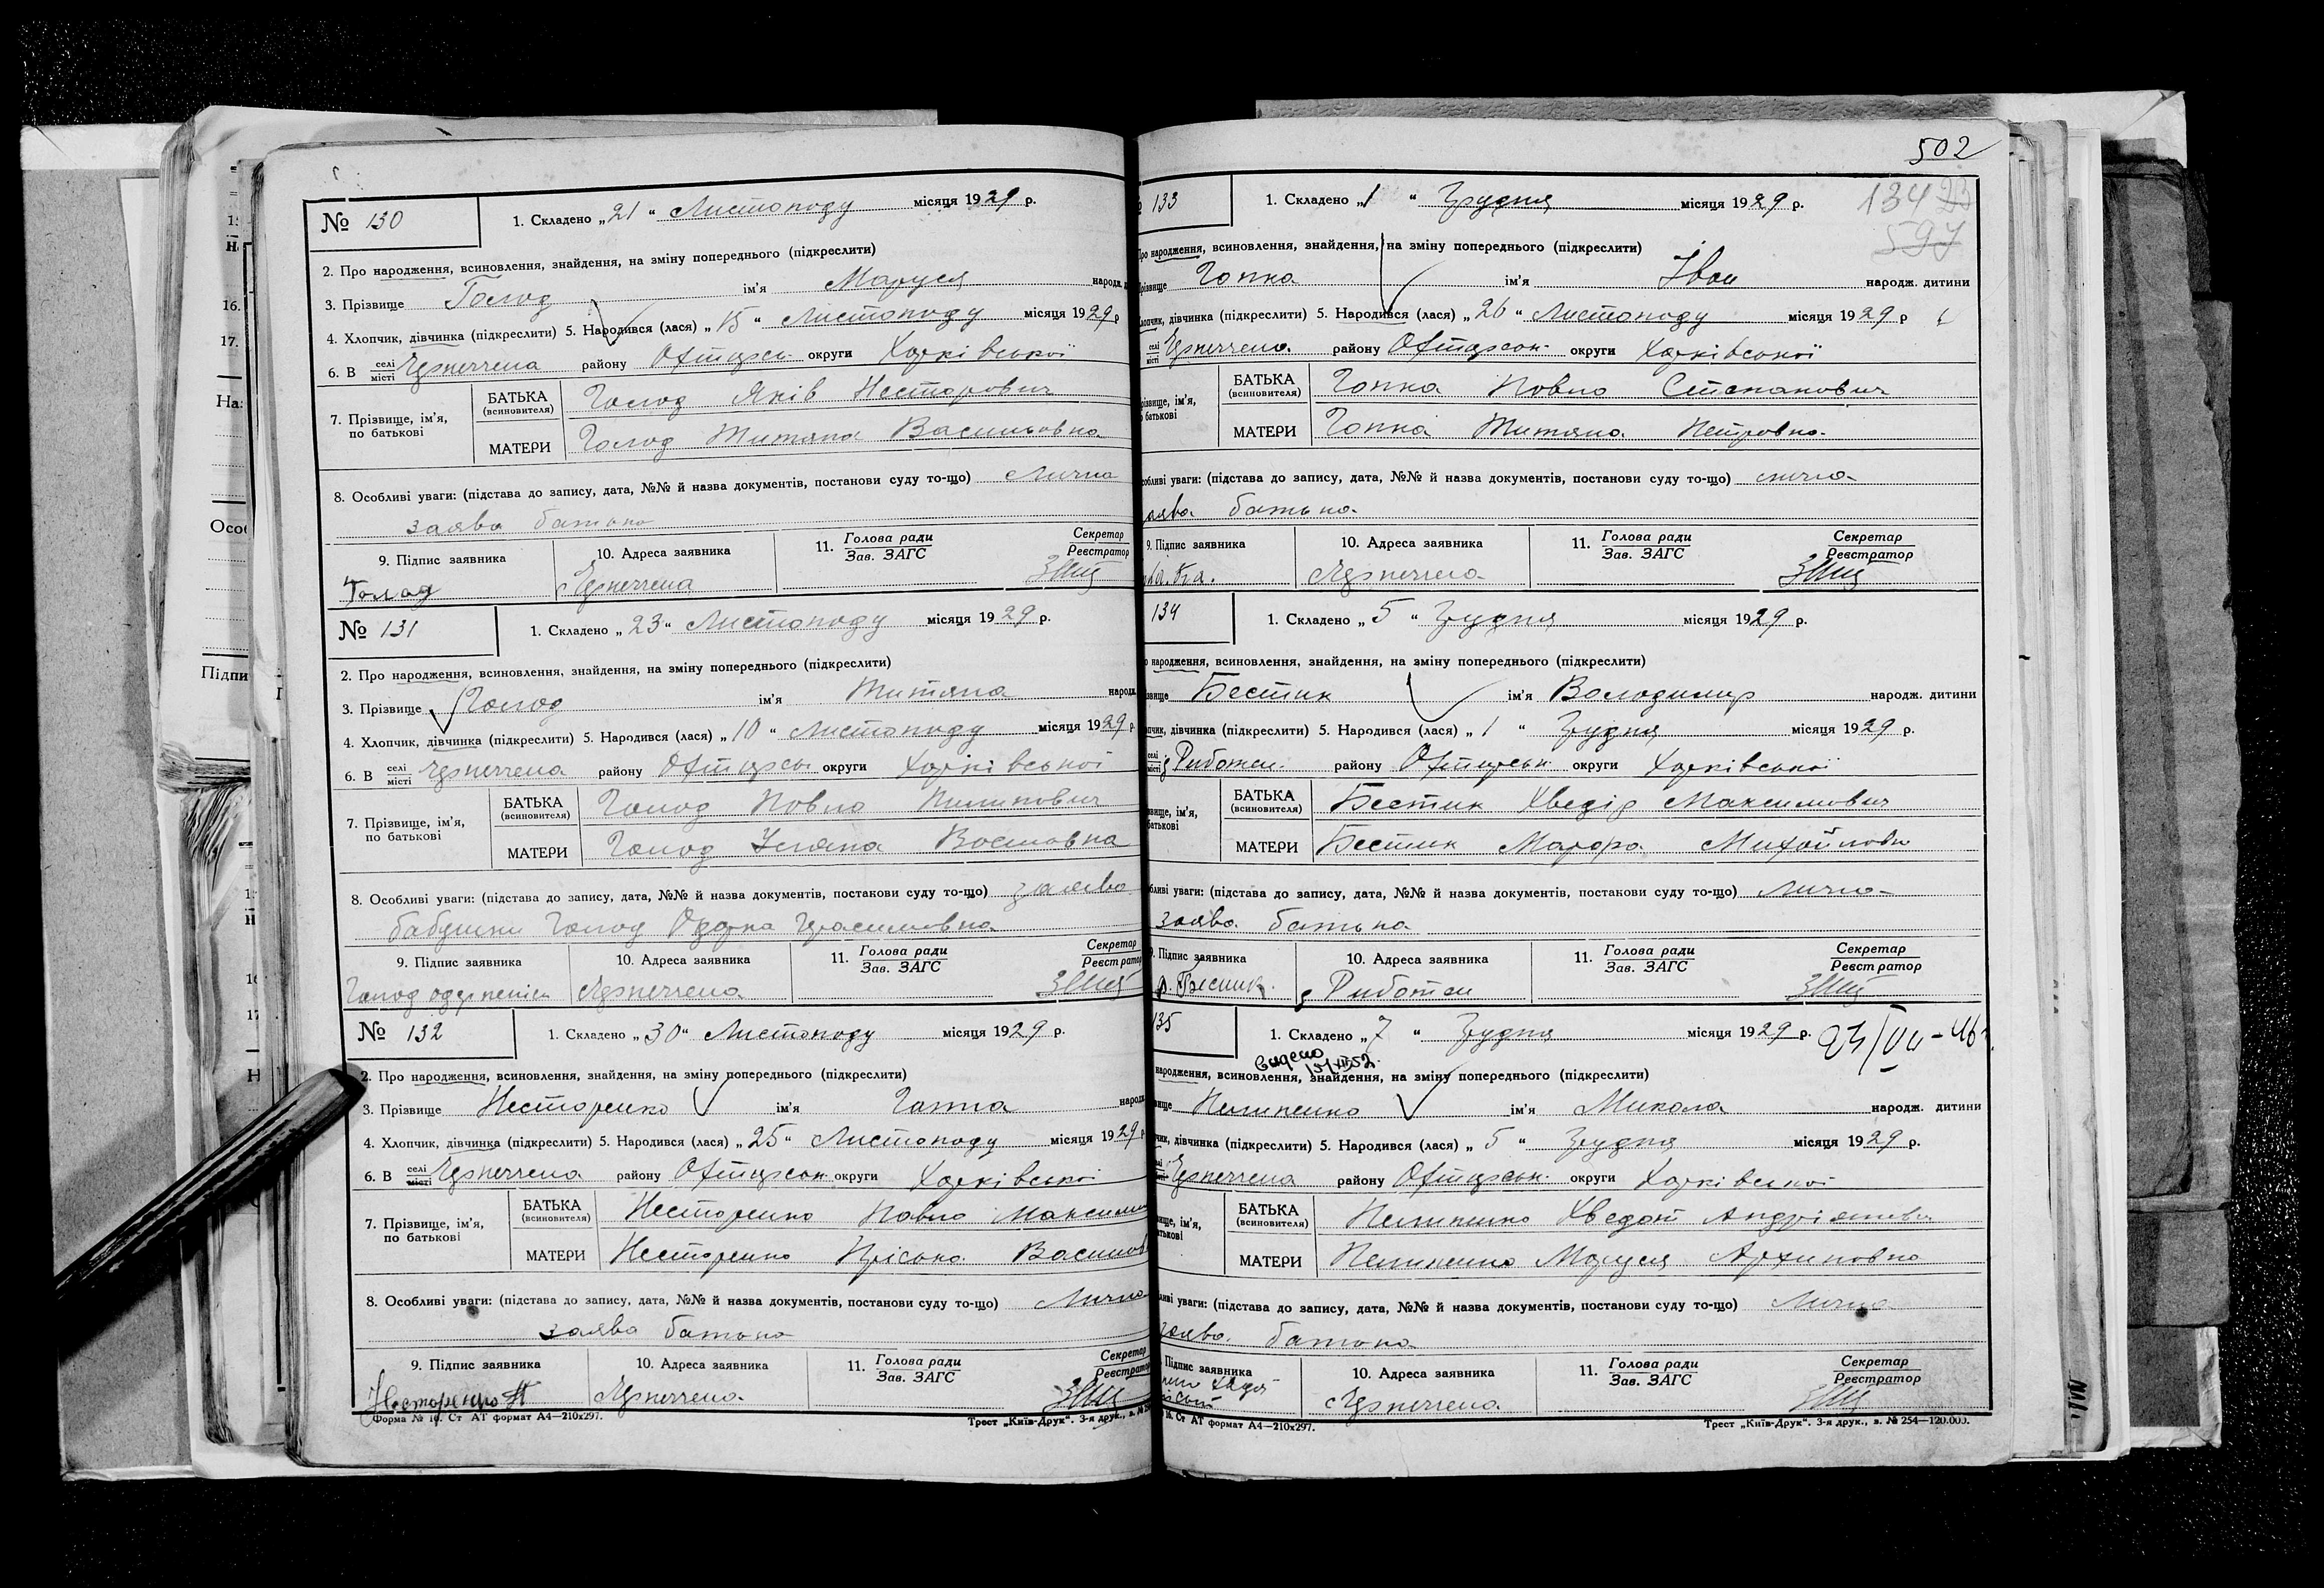 № 130
1. Складено „21“ Листопаду місяця 1929 р.
2. Про народження, всиновлення, знайдення, на зміну попереднього (підкреслити)
3. Прізвище Голод ім'я Маруся народж.
4. Хлопчик, дівчинка (підкреслити) 5. Народився (лася) „15“ Листопаду місяця 1929 р
6. В селі місті району Охтирськ округи Харківської
7. Прізвище, ім'я, по батькові
БАТЬКА (всиновителя) Голод Яків Несторович
МАТЕРИ Голод Титяна Васильовна
8. Особливі уваги: (підстава до запису, дата, №№ й назва документів, постанови суду то-що) Лична
заява батька
9. Підпис заявника 10. Адреса заявника 11. Голова ради Зав. ЗАГС Секретар Реєстратор
Голод
№ 131
1. Складено „23“ Листопаду місяця 1929 р.
2. Про народження, всиновлення, знайдення, на зміну попереднього (підкреслити)
3. Прізвище Голод ім'я Титяна народж.
4. Хлопчик, дівчинка (підкреслити) 5. Народився (лася) „10“ Листопаду місяця 1929 р
6. В селі місті району Охтирськ округи Харківської
7. Прізвище, ім'я, по батькові
БАТЬКА (всиновителя) Голод Павло Пилипович
МАТЕРИ Голод Уляна
8. Особливі уваги: (підстава до запису, дата, №№ й назва документів, постакови суду то-що) заява
бабушки Голод Одарка Герасимовна
9. Підпис заявника 10. Адреса заявника 11. Голова ради Зав. ЗАГС Секретар Реєстратор
Голод
№ 132
1. Складено „30“ Листопаду місяця 1929 р.
2. Про народження, всиновлення, знайдення, на зміну попереднього (підкреслити)
3. Прізвище Несторенко ім'я Ганна народж.
4. Хлопчик, дівчинка (підкреслити) 5. Народився (лася) „25“ Листопаду місяця 1929 р
6. В селі місті району Охтирськ округи Харківської
7. Прізвище, ім'я, по батькові
БАТЬКА (всиновителя) Несторенко Павло Максимов
МАТЕРИ Несторенко Пріська Василов
8. Особливі уваги: (підстава до запису, дата, №№ й назва документів, постанови суду то-що) Лична
заява батька
9. Підпис заявника 10. Адреса заявника 11. Голова ради Зав. ЗАГС Секретар Реєстратор
Несторенко П
Форма № 16. Ст АТ формат А4—210х297. Трест „Київ-Друк“. 3-я друк., з. № 25
502
134 23
597
133
1. Складено „1“ Грудня місяця 1929 р.
Про народження, всиновлення, знайдення, на зміну попереднього (підкреслити)
Прізвище Гопка ім'я Іван народж. дитини
Хлопчик, дівчинка (підкреслити) 5. Народився (лася) „26“ Листопаду місяця 1929 р
селі місті району Охтирськ округи Харківської
Прізвище, ім'я, по батькові
БАТЬКА (всиновителя) Гопка Павло Степанович
МАТЕРИ Гопка Титяна Петровна
Особливі уваги: (підстава до запису, дата, №№ й назва документів, постанови суду то-що) лична
заява батька
9. Підпис заявника 10. Адреса заявника 11. Голова ради Зав. ЗАГС Секретар Реєстратор
134
1. Складено „5“ Грудня місяця 1929 р.
народження, всиновлення, знайдення, на зміну попереднього (підкреслити)
Бестик ім'я Володимир народж. дитини
дівчинка (підкреслити) 5. Народився (лася) „1“ Грудня місяця 1929 р.
селі місті Риботен району Охтирськ округи Харківської
БАТЬКА (всиновителя) Бестик Хведір Максимович
МАТЕРИ Бестик Марфа Михайловн
уваги: (підстава до запису, дата, №№ й назва документів, постакови суду то-що) Лична
заява батька
9. Підпис заявника 10. Адреса заявника 11. Голова ради Зав. ЗАГС Секретар Реєстратор
Риботен
135
1. Складено „7“ Грудня місяця 1929 р.
народження, всиновлення, знайдення, на зміну попереднього (підкреслити)
Пилипенко ім'я Микола народж. дитини
дівчинка (підкреслити) 5. Народився (лася) „5“ Грудня місяця 1929 р.
району Охтирськ округи Харківської
БАТЬКА (всиновителя) Пилипенко Хведот
МАТЕРИ Пилипенко Маруся Архиповна
уваги: (підстава до запису, дата, №№ й назва документів, постанови суду то-що) Лична
заява батька
Підпис заявника 10. Адреса заявника 11. Голова ради Зав. ЗАГС Секретар Реєстратор
16. Ст АТ формат А4—210х297. Трест „Київ-Друк“. 3-я друк., з. № 254—120.000.